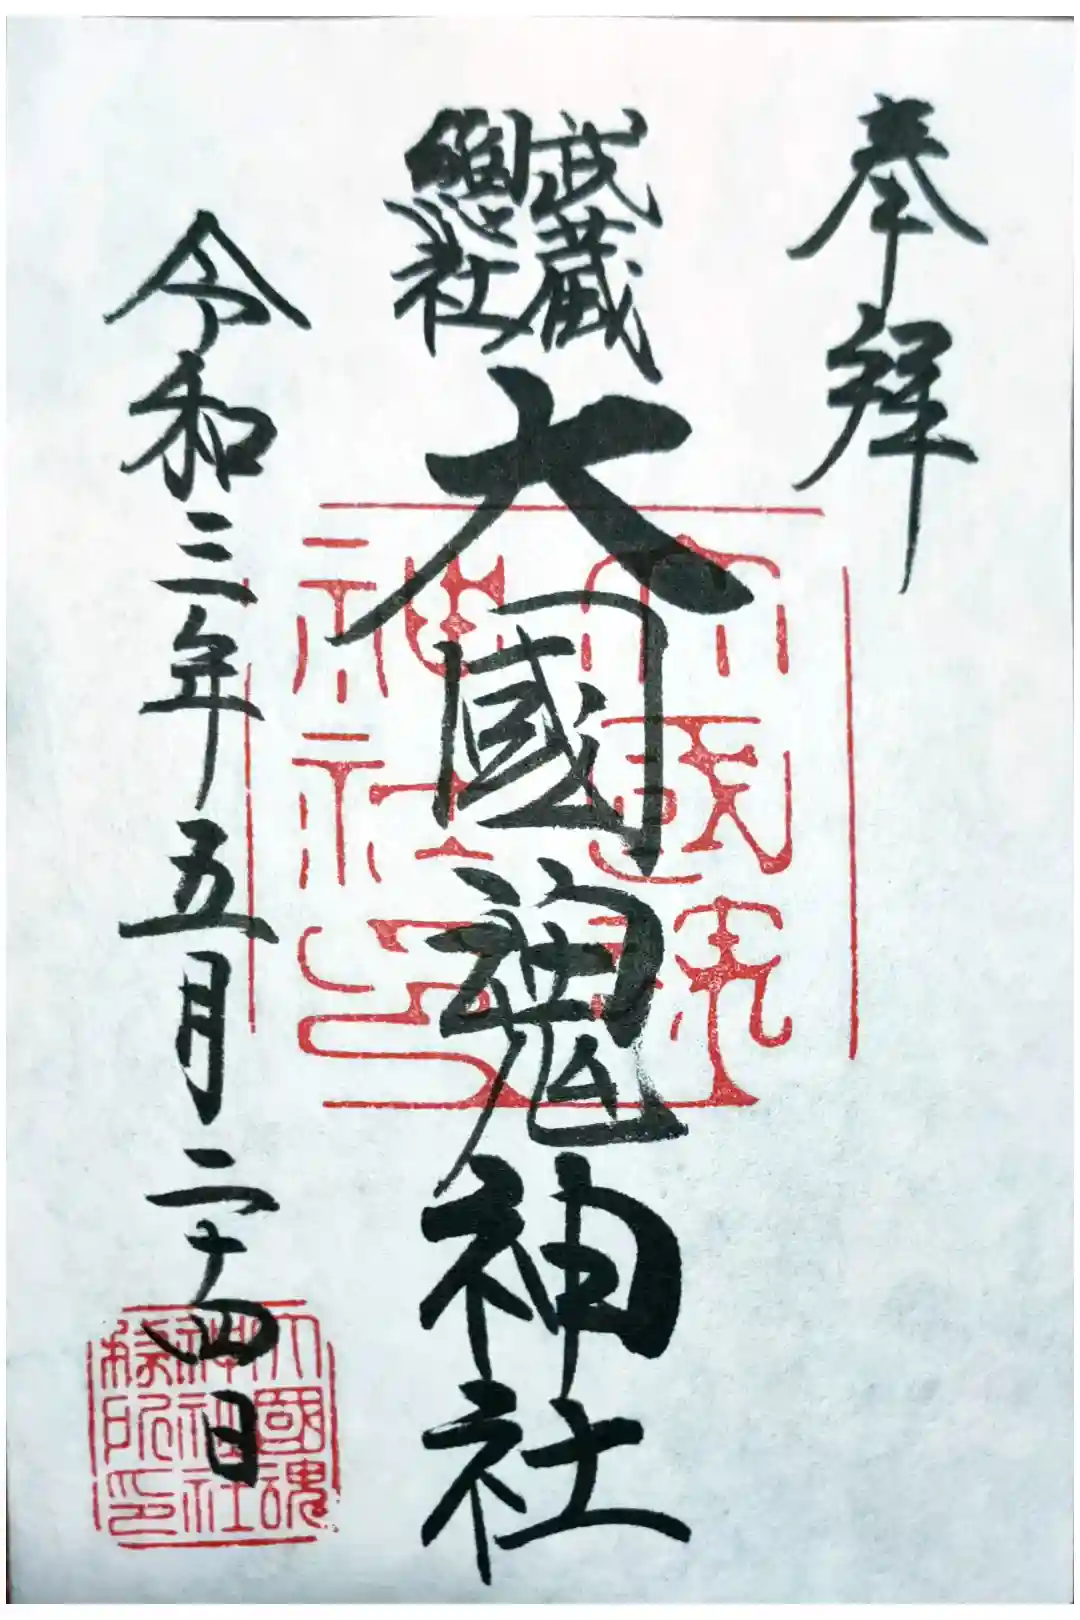 奉拜
武蔵
總社
大國魂神社
令和三年五月二十四日
大國魂
神社印
大國魂
神社
務所印